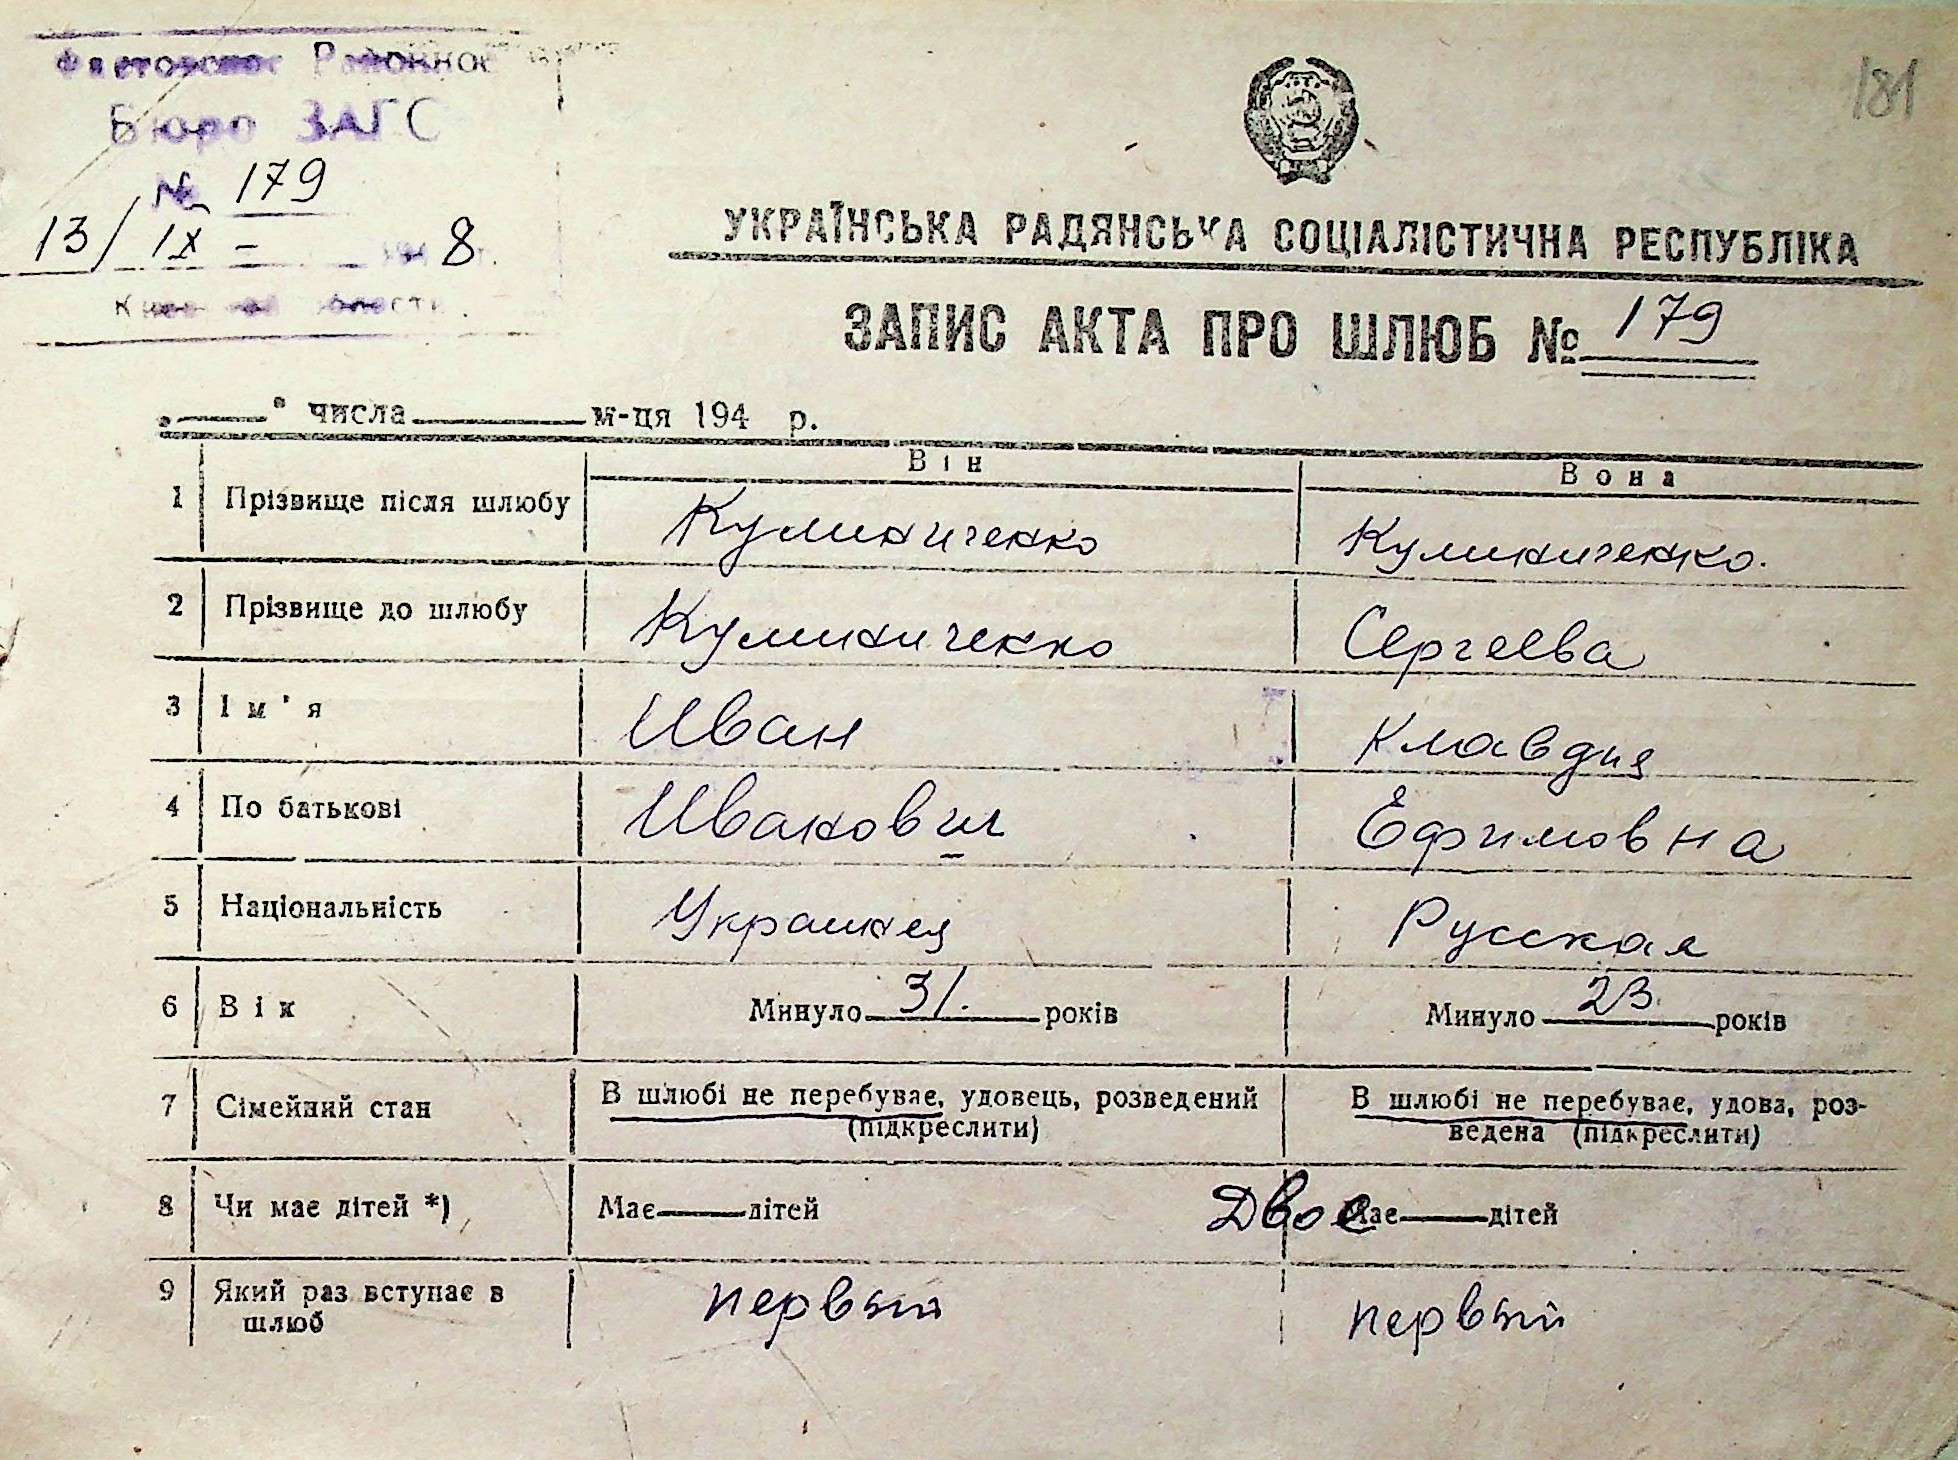 Фастовское Районное
Бюро ЗАГС
№ 179
13/IX - 8
181
УКРАЇНСЬКА РАДЯНСЬКА СОЦІАЛІСТИЧНА РЕСПУБЛІКА
ЗАПИС АКТА ПРО ШЛЮБ № 179
„ “ числа м-ця 194 р.
Він Вона
1 Прізвище після шлюбу Кулиниченко Кулиниченко.
2 Прізвище до шлюбу Кулиниченко Сергеева
3 Ім'я Иван Клавдия
4 По батькові Иванович Ефимовна
5 Національність Украинец Русская
6 Вік Минуло 31. років Минуло 23 років
7 Сімейний стан В шлюбі не перебуває, удовець, розведений (підкреслити) В шлюбі не перебуває, удова, роз-
ведена (підкреслити)
8 Чи має дітей *) Має дітей Двое Має дітей
9 Який раз вступає в первый первый
шлюб